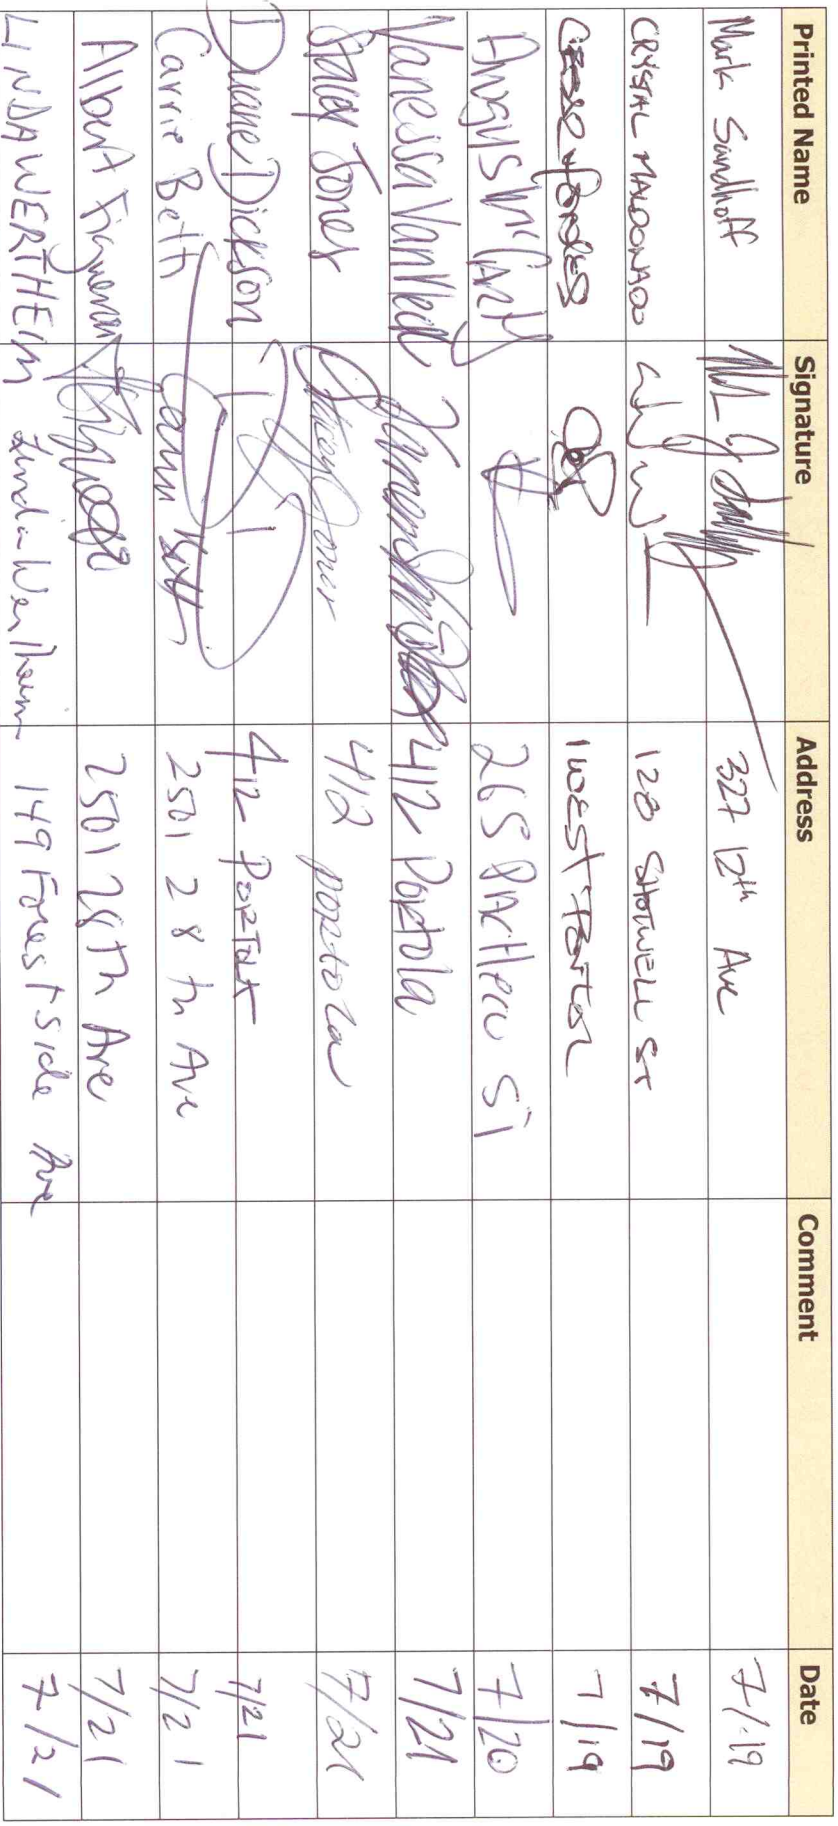 Printed Name Signature Address Comment Date
Mark Sandhoff 327 12th Ave 7/19
CRYSTAL MALDONADO 128 SHOTWELL ST 7/19
1 WEST PORTOL 7/19
Angus McCarthy 7/20
Vanessa VanVleck 412 Portola 7/21
Stacey Jones Stacey Jones 412 portola 7/21
Duane Dickson 412 7/21
Carrie Beth 2501 28th Ave 7/21
Albert Figueroa 2501 28th Ave 7/21
LINDA WERTHEIM Linda Wertheim 149 Forest Side Ave 7/21